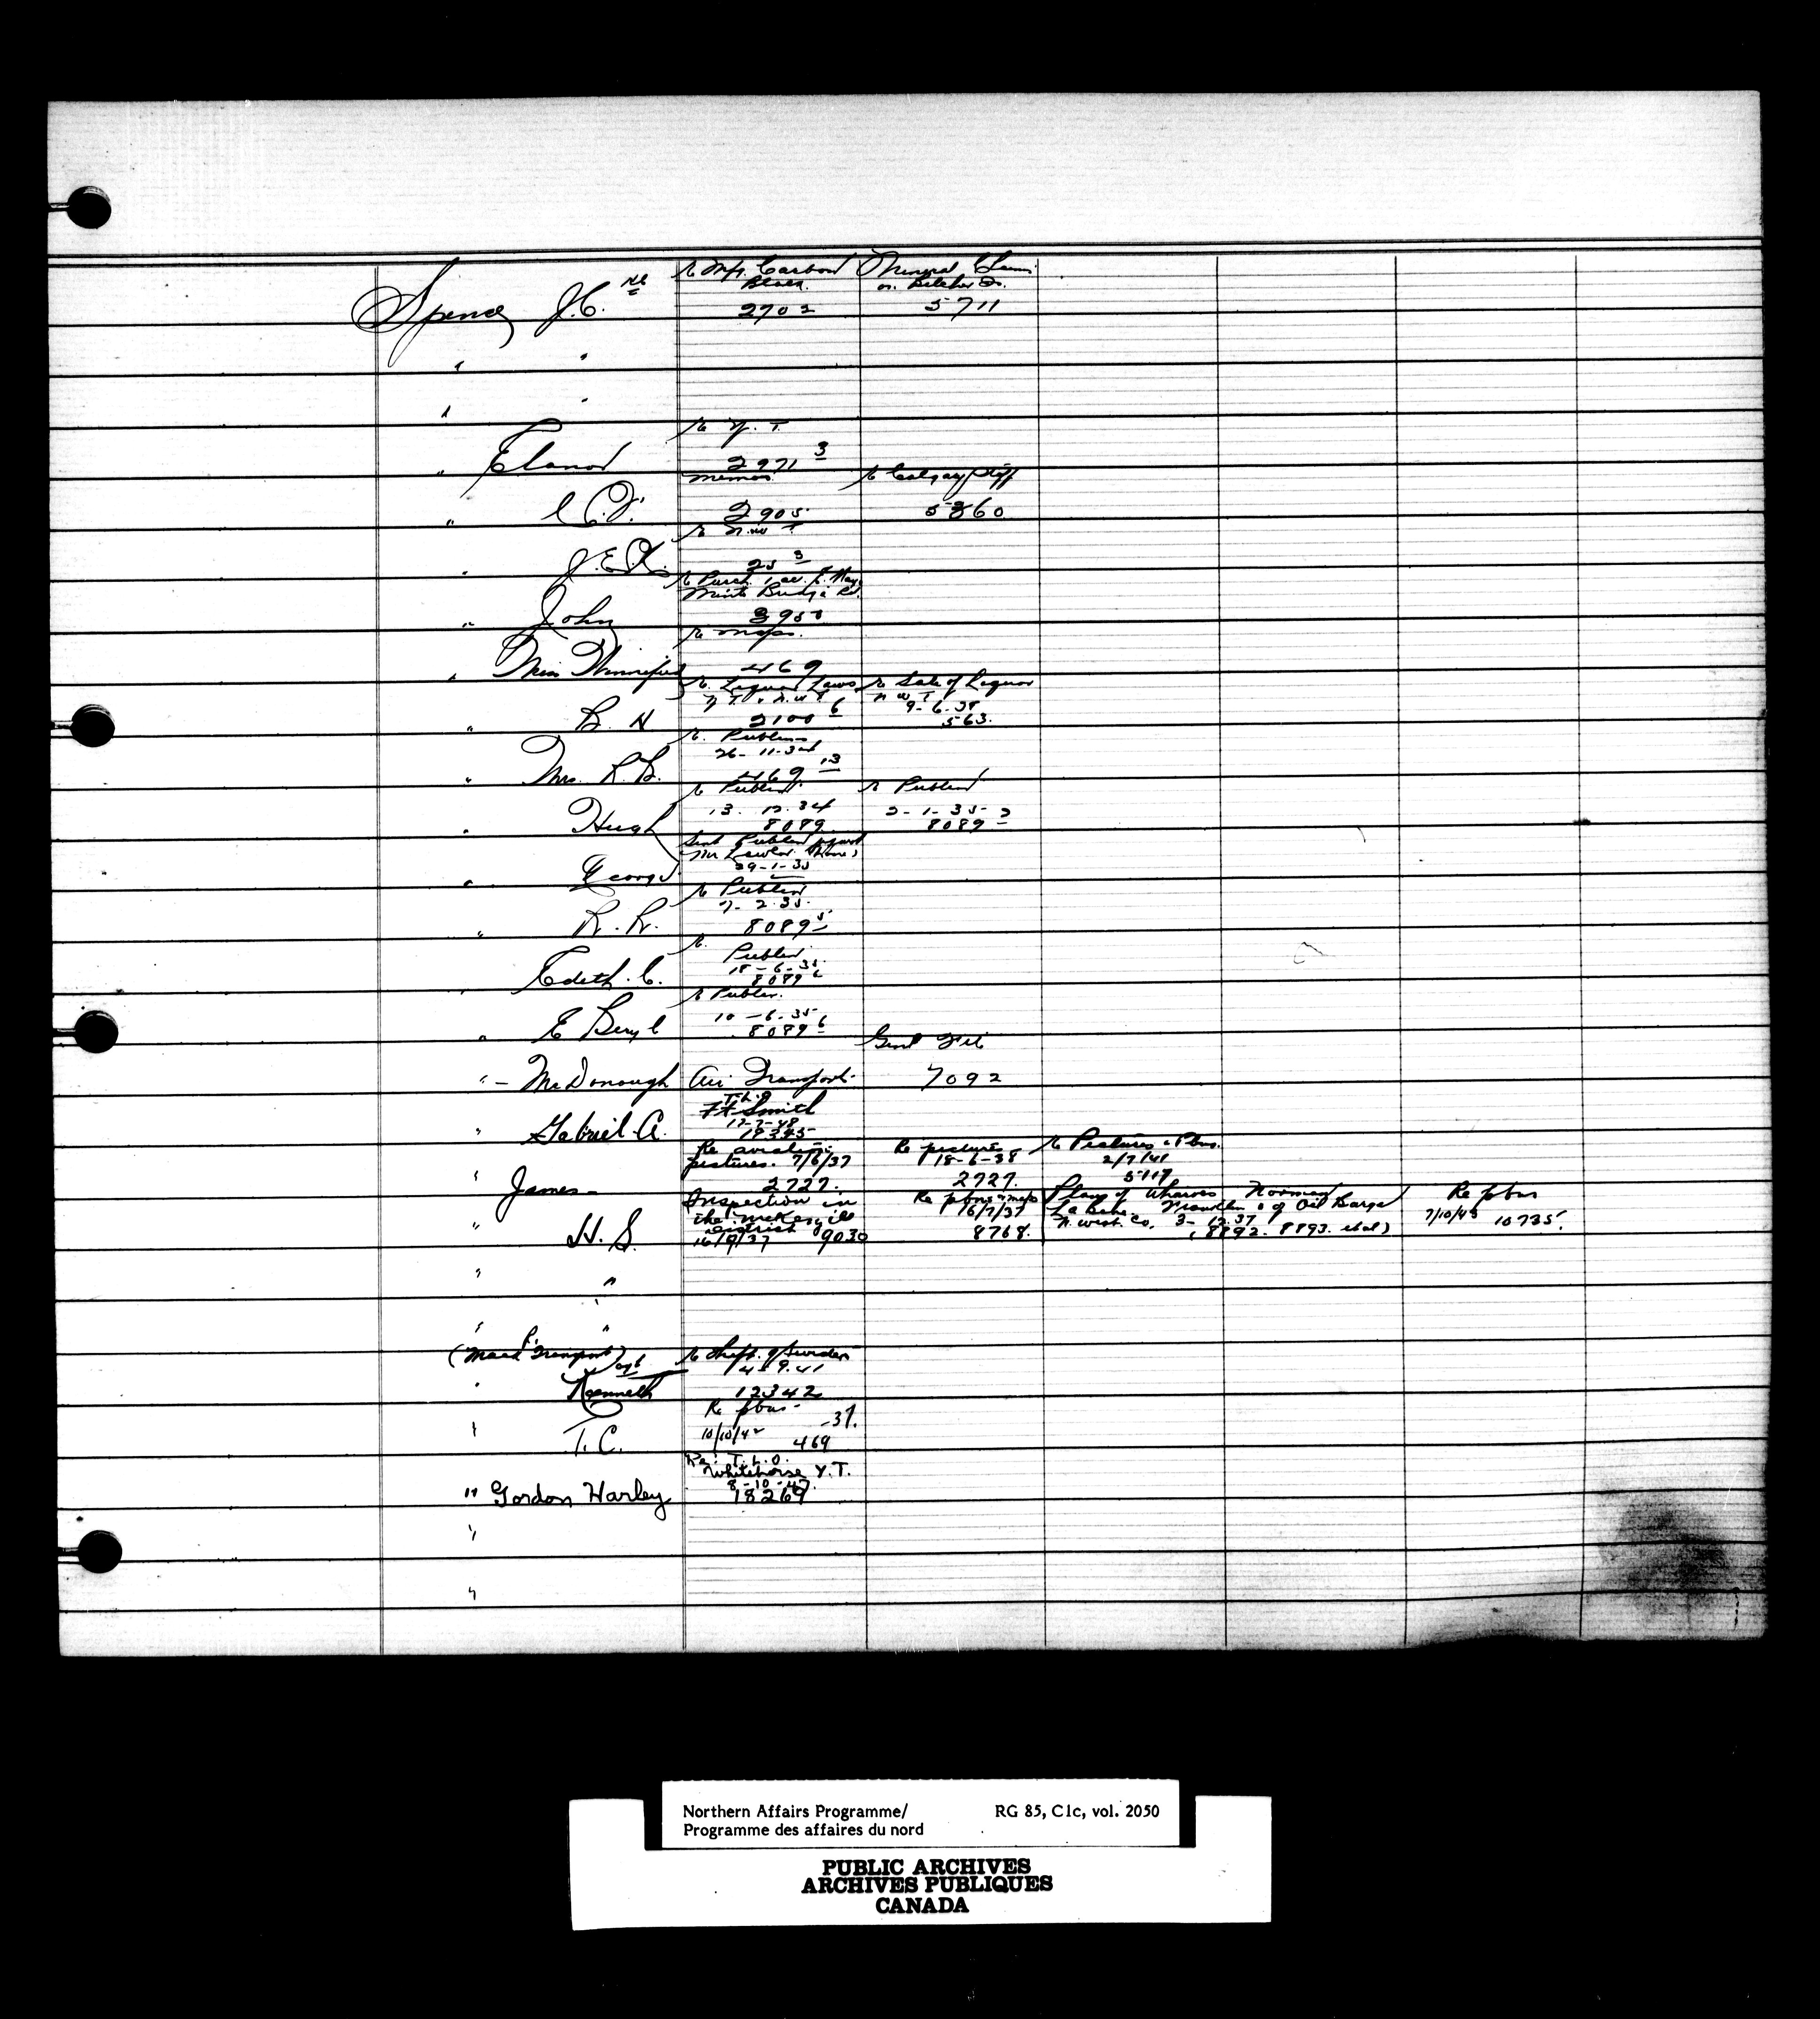 Spence J.C.
Re Mfr. Carbon Black
2702
Mineral Claim
on Belcher Is.
5711
" "
" "
" Elanor
Re Y.T.
2971 3
"
memo
2905
Re Calgary Staff
5860
" J.E.
Re N.W.T.
25 3
" John
Re Purch. 1 ac.
Bridge Rd.
3950
" Miss Winnifred
Re maps.
469
" B. H
Re Liquor Laws
Y.T. & N.W.T.
2100 6
Re Sale of Liquor
N.W.T.
9-6-38
563.
" Mrs. R.B.
Re Publns
26-11-34
469 13
" Hugh
Re Publns
13.12.34
8089
Re Publns
2-1-35
8089 2
" George
Sent Publns
Mr Lawlor
29-1-35
" R.R.
Re Publns
7-2-35.
8089 5
" Edith. C.
Re Publns
18-6-35
8089 6
" E Beryl
Re Publns.
10-6-35
8089 6
" - McDonough
Air Transport
Genl File
7092
" Gabriel A.
T.L.O
Ft Smith
"
James
Re aviation
pictures. 7/6/37
2727.
Re pictures
18-6-38
2727.
Re Pictures & Pbns.
2/7/41
5117
" H. S.
Inspection in
the McKenzie
District
16/9/37 9030
Re pbns & maps
16/7/37
8768.
Plans of Wharves Norman
Franklin & of Oil Barge
N. west. Co. 3-12-37
(8892. 8893. et al)
Re pbns
7/10/43 10735.
" "
" "
(Mack Transport)
" Kenneth
Re Shipt. of
4-9-41
12342
" T. C.
Re pbns -
10/10/42 -37.
469
" Gordon Harley
Re: T.L.O.
Whitehorse Y.T.
8-10-47.
18269
"
"
Northern Affairs Programme/
Programme des affaires du nord
RG 85, C1c, vol. 2050
PUBLIC ARCHIVES
ARCHIVES PUBLIQUES
CANADA